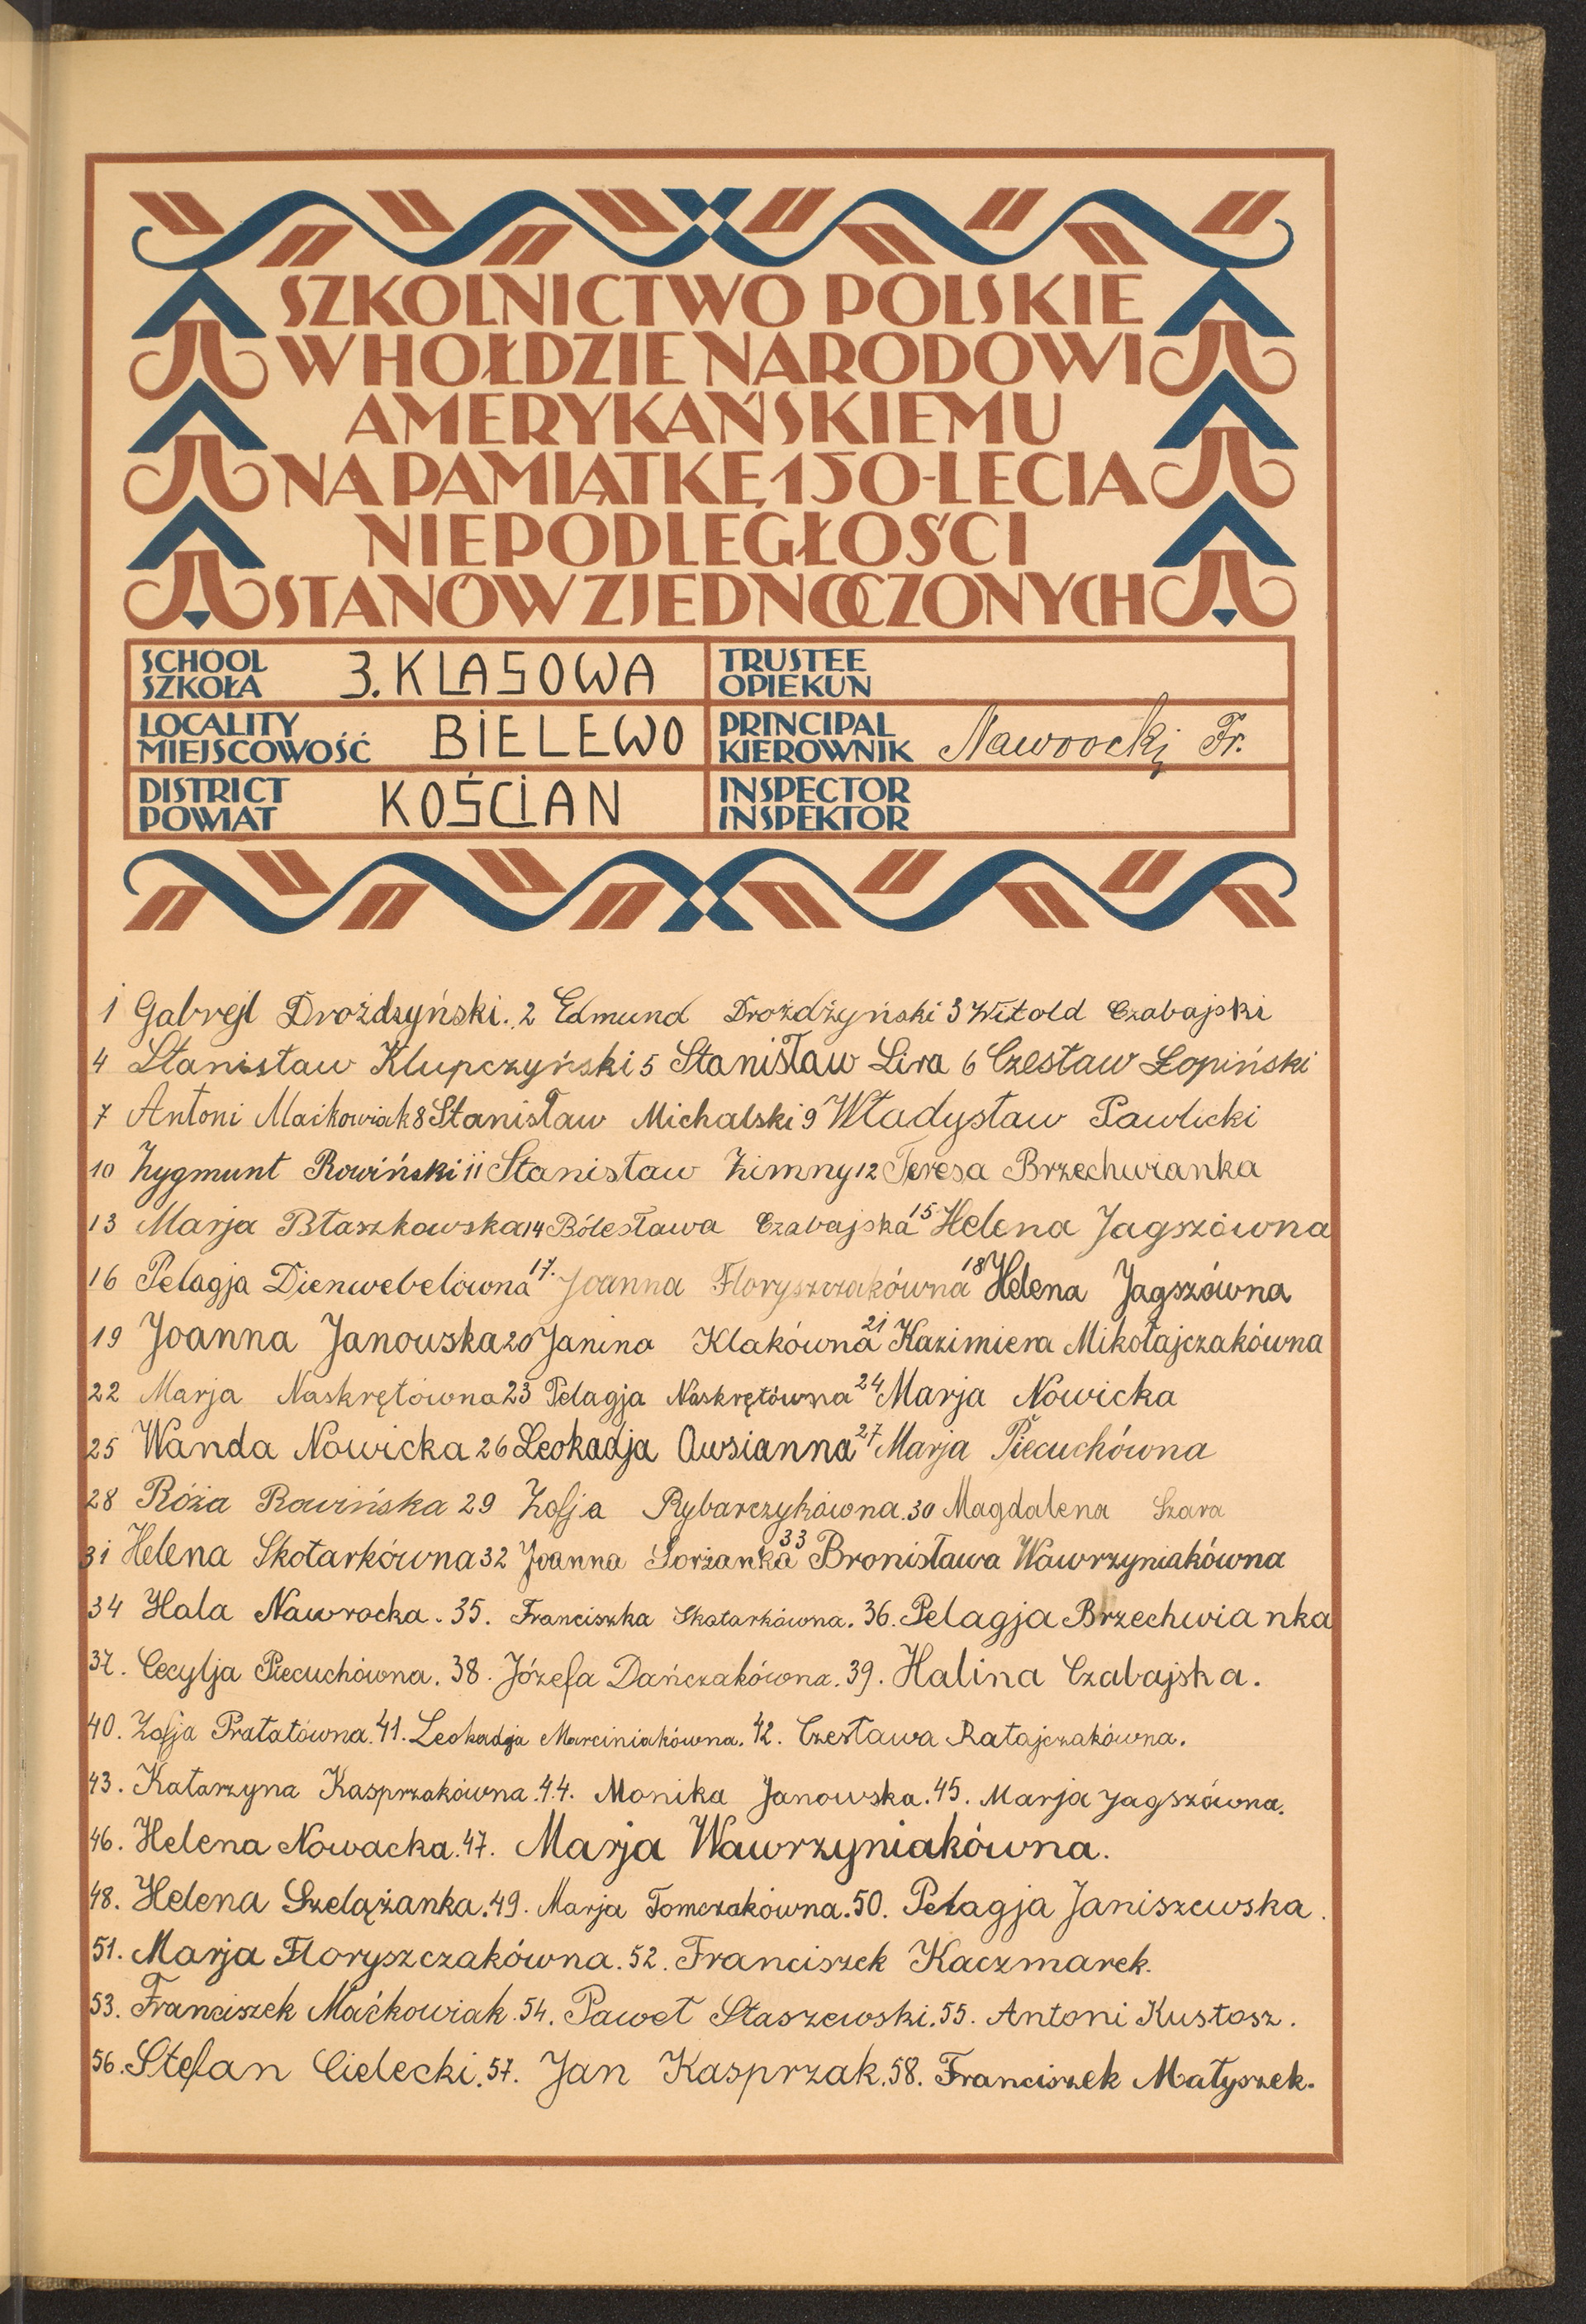 SZKOLNICTWO POLSKIE
W HOŁDZIE NARODOWI
AMERYKAŃSKIEMU
NA PAMIĄTKĘ 150-LECIA
NIEPODLEGŁOŚCI
STANÓW ZJEDNOCZONYCH
SCHOOL
SZKOŁA 3. KLASOWA
TRUSTEE
OPIEKUN
LOCALITY
MIEJSCOWOŚĆ BIELEWO
PRINCIPAL
KIEROWNIK Nawrocki Fr.
DISTRICT
POWIAT KOŚCIAN
INSPECTOR
INSPEKTOR
1 Gabrejl Drożdzyński. 2 Edmund Drożdżyński 3 Witold Czabajski
4 Stanisław Klupczyński 5 Stanisław Lira 6 Czesław Łopiński
7 Antoni Maćkowiak 8 Stanisław Michalski 9 Władysław Pawlicki
10 Zygmunt Rowiński 11 Stanisław Zimny 12 Teresa Brzechwianka
13 Marja Błaszkowska 14 Bólesława Czabajska 15 Helena Jagszówna
16 Pelagja Dienwebelówna 17. Joanna Floryszczakówna 18 Helena Jagszówna
19 Joanna Janowska 20 Janina Klakówna 21 Kazimiera Mikołajczakówna
22 Marja Naskrętówna 23 Pelagja Naskrętówna 24 Marja Nowicka
25 Wanda Nowicka 26 Leokadja Owsianna 27 Marja Piecuchówna
28 Róża Rowińska 29 Zofja Rybarczykówna. 30 Magdalena Szara
31 Helena Skotarkówna 32 Joanna Sorżanka 33 Bronisława Wawrzyniakówna
34 Hala Nawrocka. 35. Franciszka Skotarkówna. 36. Pelagja Brzechwianka
37. Cecylja Piecuchówna. 38. Józefa Dańczakówna. 39. Halina Czabajska.
40. Zofja Pratatówna. 41. Leokadja Marciniakówna. 42. Czesława Ratajczakówna.
43. Katarzyna Kasprzakówna. 44. Monika Janowska. 45. Marja Jagszówna.
46. Helena Nowacka. 47. Marja Wawrzyniakówna.
48. Helena Szelążanka. 49. Marja Tomczakówna. 50. Pelagja Janiszewska.
51. Marja Floryszczakówna. 52. Franciszek Kaczmarek.
53. Franciszek Maćkowiak. 54. Paweł Staszewski. 55. Antoni Kustosz.
56. Stefan Cielecki. 57. Jan Kasprzak. 58. Franciszek Matyszek.